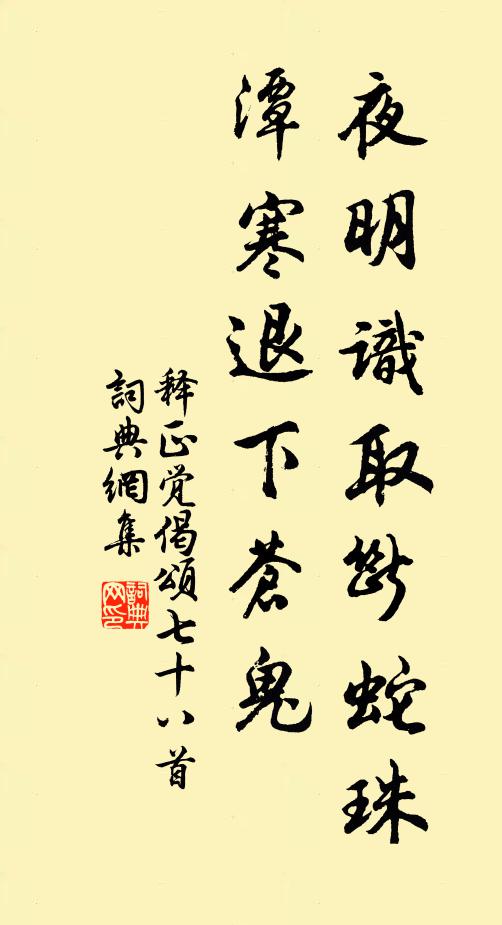 夜明識取断蛇珠
潭寒退下蒼鬼
释正觉偈頌七十八首
詞典網集
詞典网印